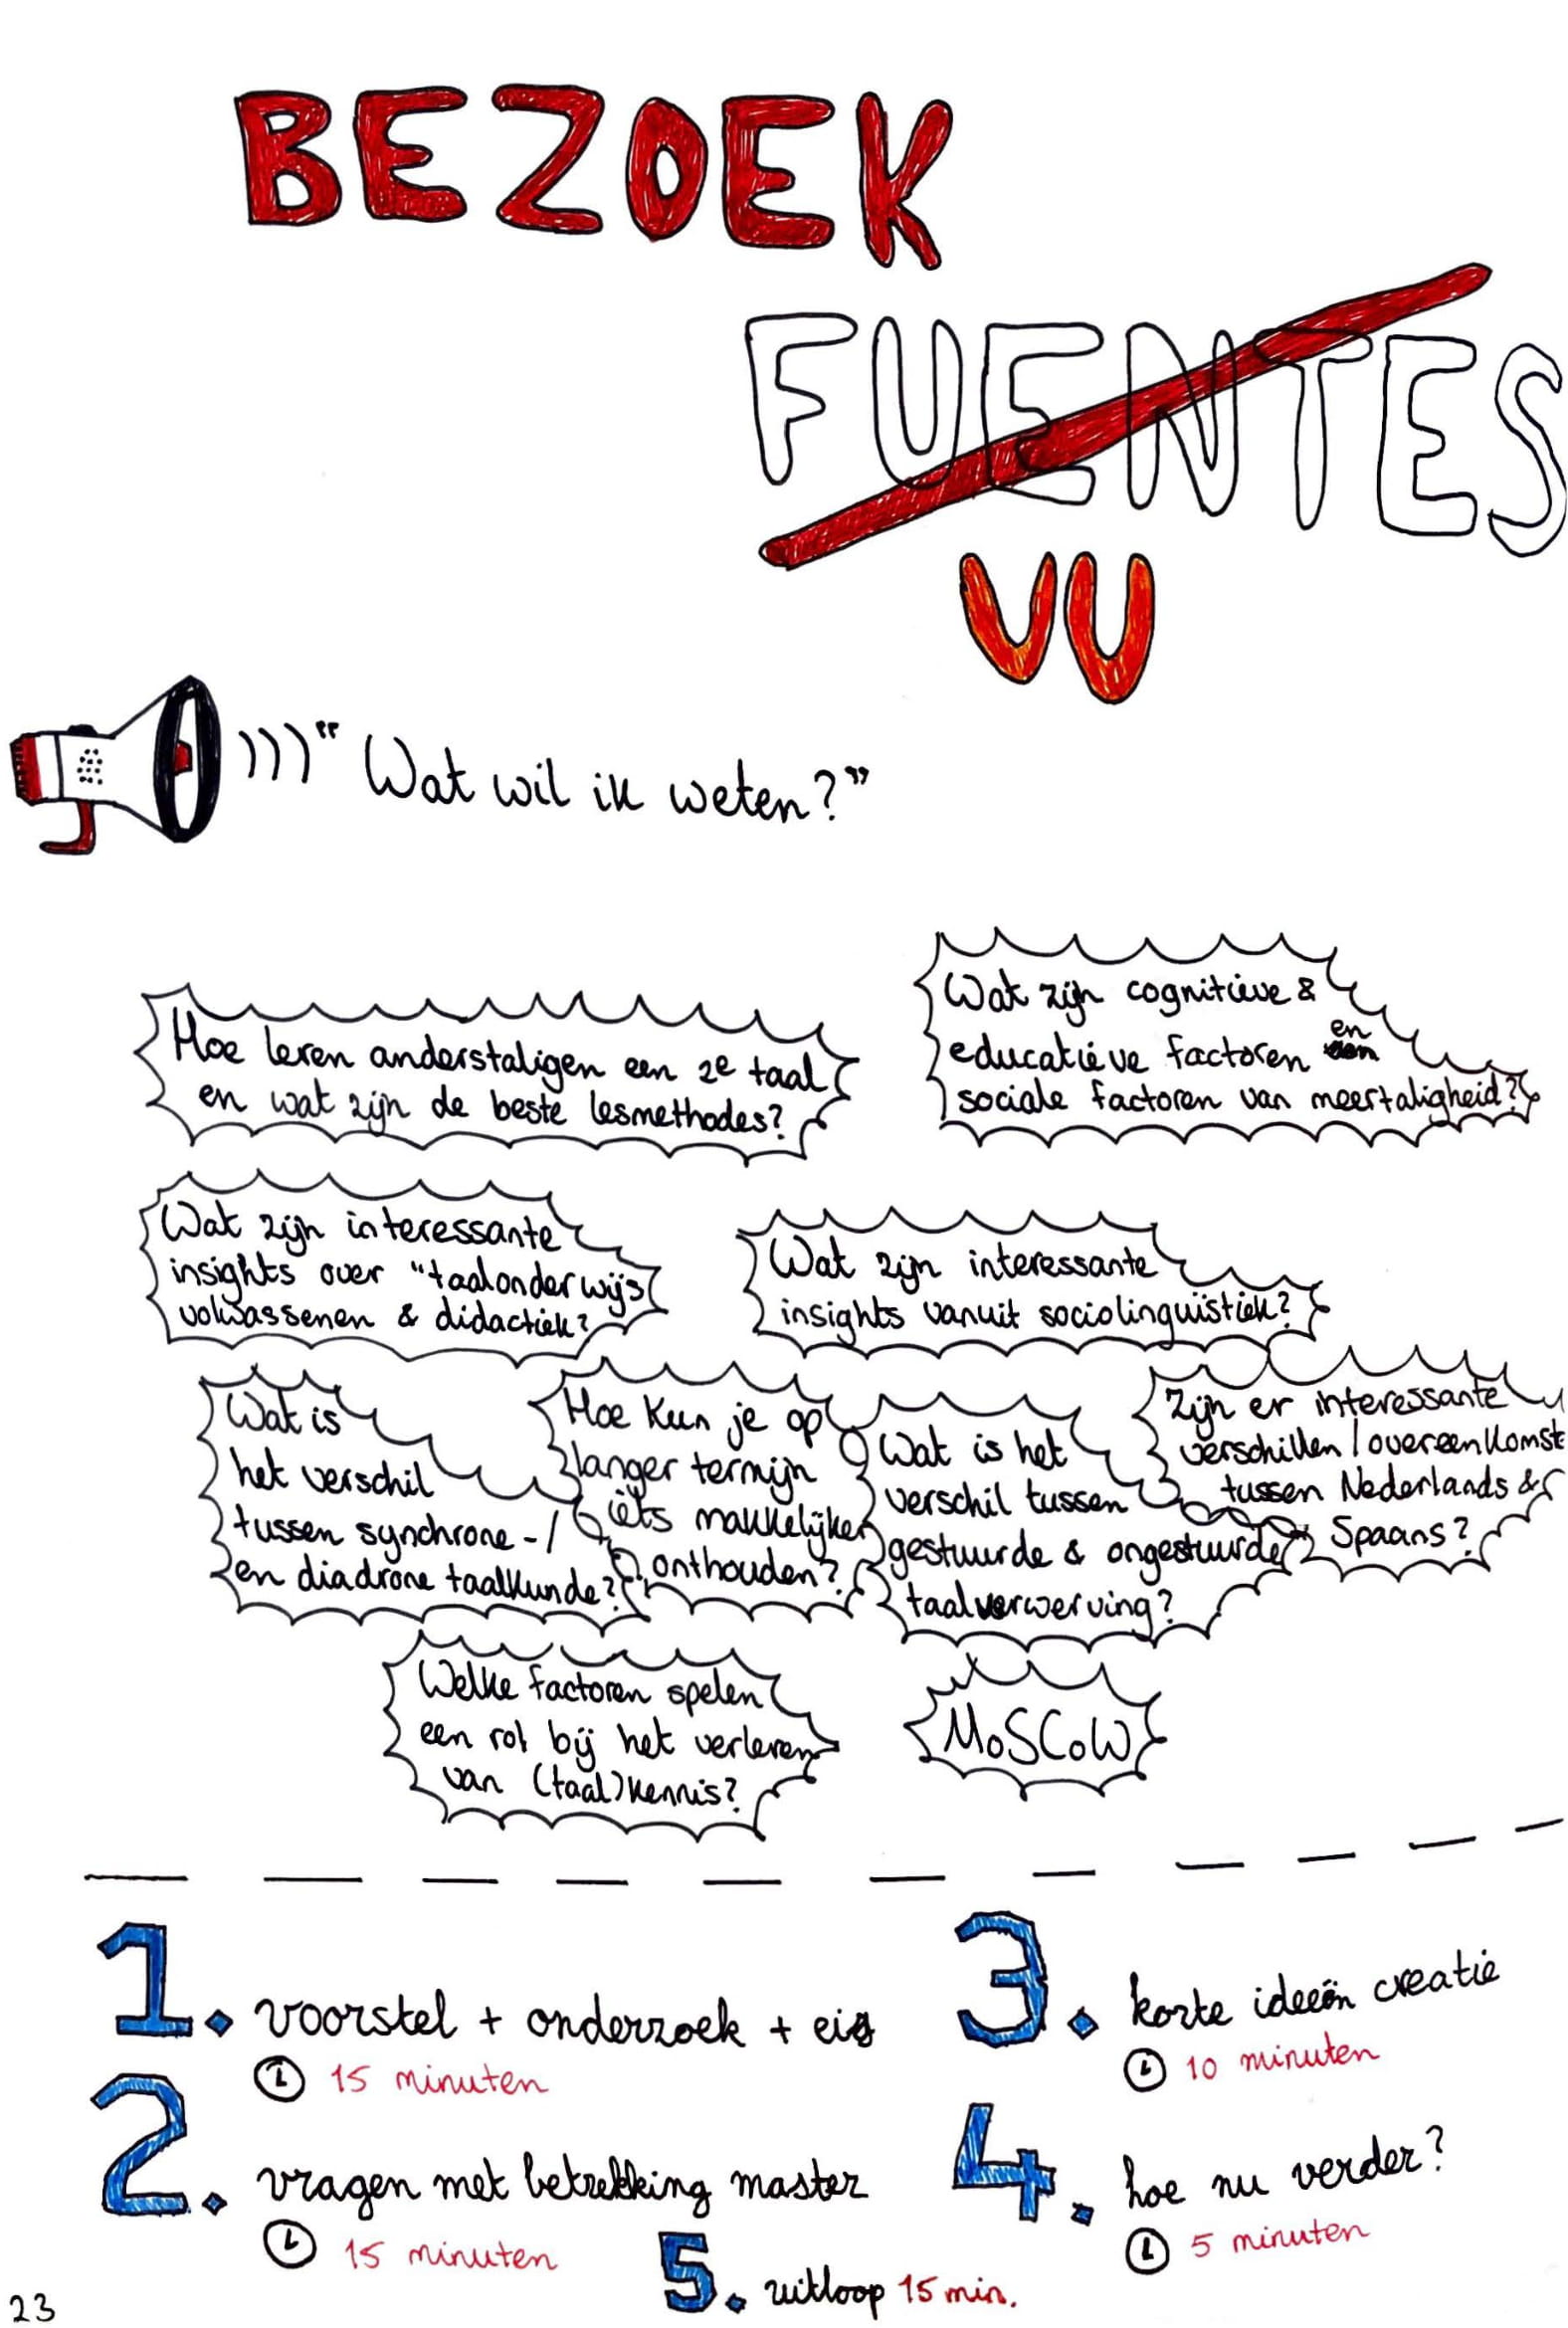 BEZOEK
FUENTES
VU
"Wat wil ik weten?"
Hoe leren anderstaligen een 2e taal
en wat zijn de beste lesmethodes?
Wat zijn cognitieve &
educatieve factoren en
sociale factoren van meertaligheid?
Wat zijn interessante
insights over "taalonderwijs
volwassenen & didactiek?
Wat zijn interessante
insights vanuit sociolinguïstiek?
Wat is
het verschil
tussen synchrone-/
en diadrone taalkunde?
Hoe kun je op
langer termijn
iets makkelijker
onthouden?
Wat is het
verschil tussen
gestuurde & ongestuurde
taalverwerving?
Zijn er interessante
verschillen/overeenkomste
tussen Nederlands &
Spaans?
Welke factoren spelen
een rol bij het verleren
van (taal)kennis?
MoSCoW
1. voorstel + onderzoek + eis
15 minuten
2. vragen met betrekking master
15 minuten
3. korte ideeën creatie
10 minuten
4. hoe nu verder?
5 minuten
5. uitloop 15 min.
23